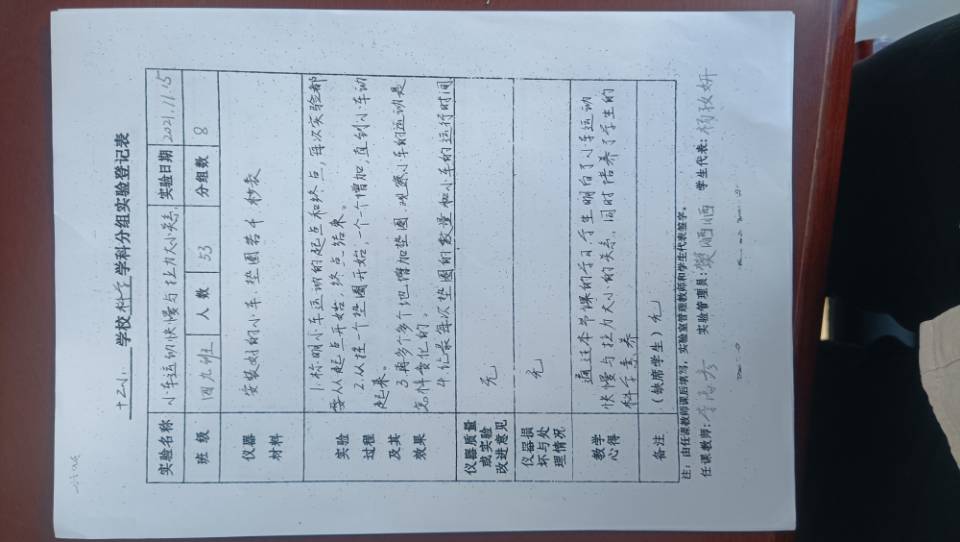 十二小 学校科学学科分组实验登记表
实验名称 小车运动快慢与拉力大小关系 实验日期 2021.11.15
班 级 四九班 人 数 53 分组数 8
仪器 材料 安装好的小车、垫圈若干 秒表
实验 过程 及其 效果
1.标明小车运动的起点和终点,每次实验都
要从起点开始,终点结束。
2.从挂一个垫圈开始,一个一个增加,直到小车动
起来。
3.再多个多个地增加垫圈 观察小车的运动是
怎样变化的。
4.记录每次垫圈的数量和小车的运行时间
仪器质量 或实验 改进意见 无
仪器损 坏与处 理情况 无
教学 心得
通过本节课的学习学生明白了小车运动
快慢与拉力大小的关系,同时培养了学生的
科学素养
备注 (缺席学生)无
注:由任课教师课后填写,实验室管理教师和学生代表签字。
任课教师: 实验管理员: 学生代表: